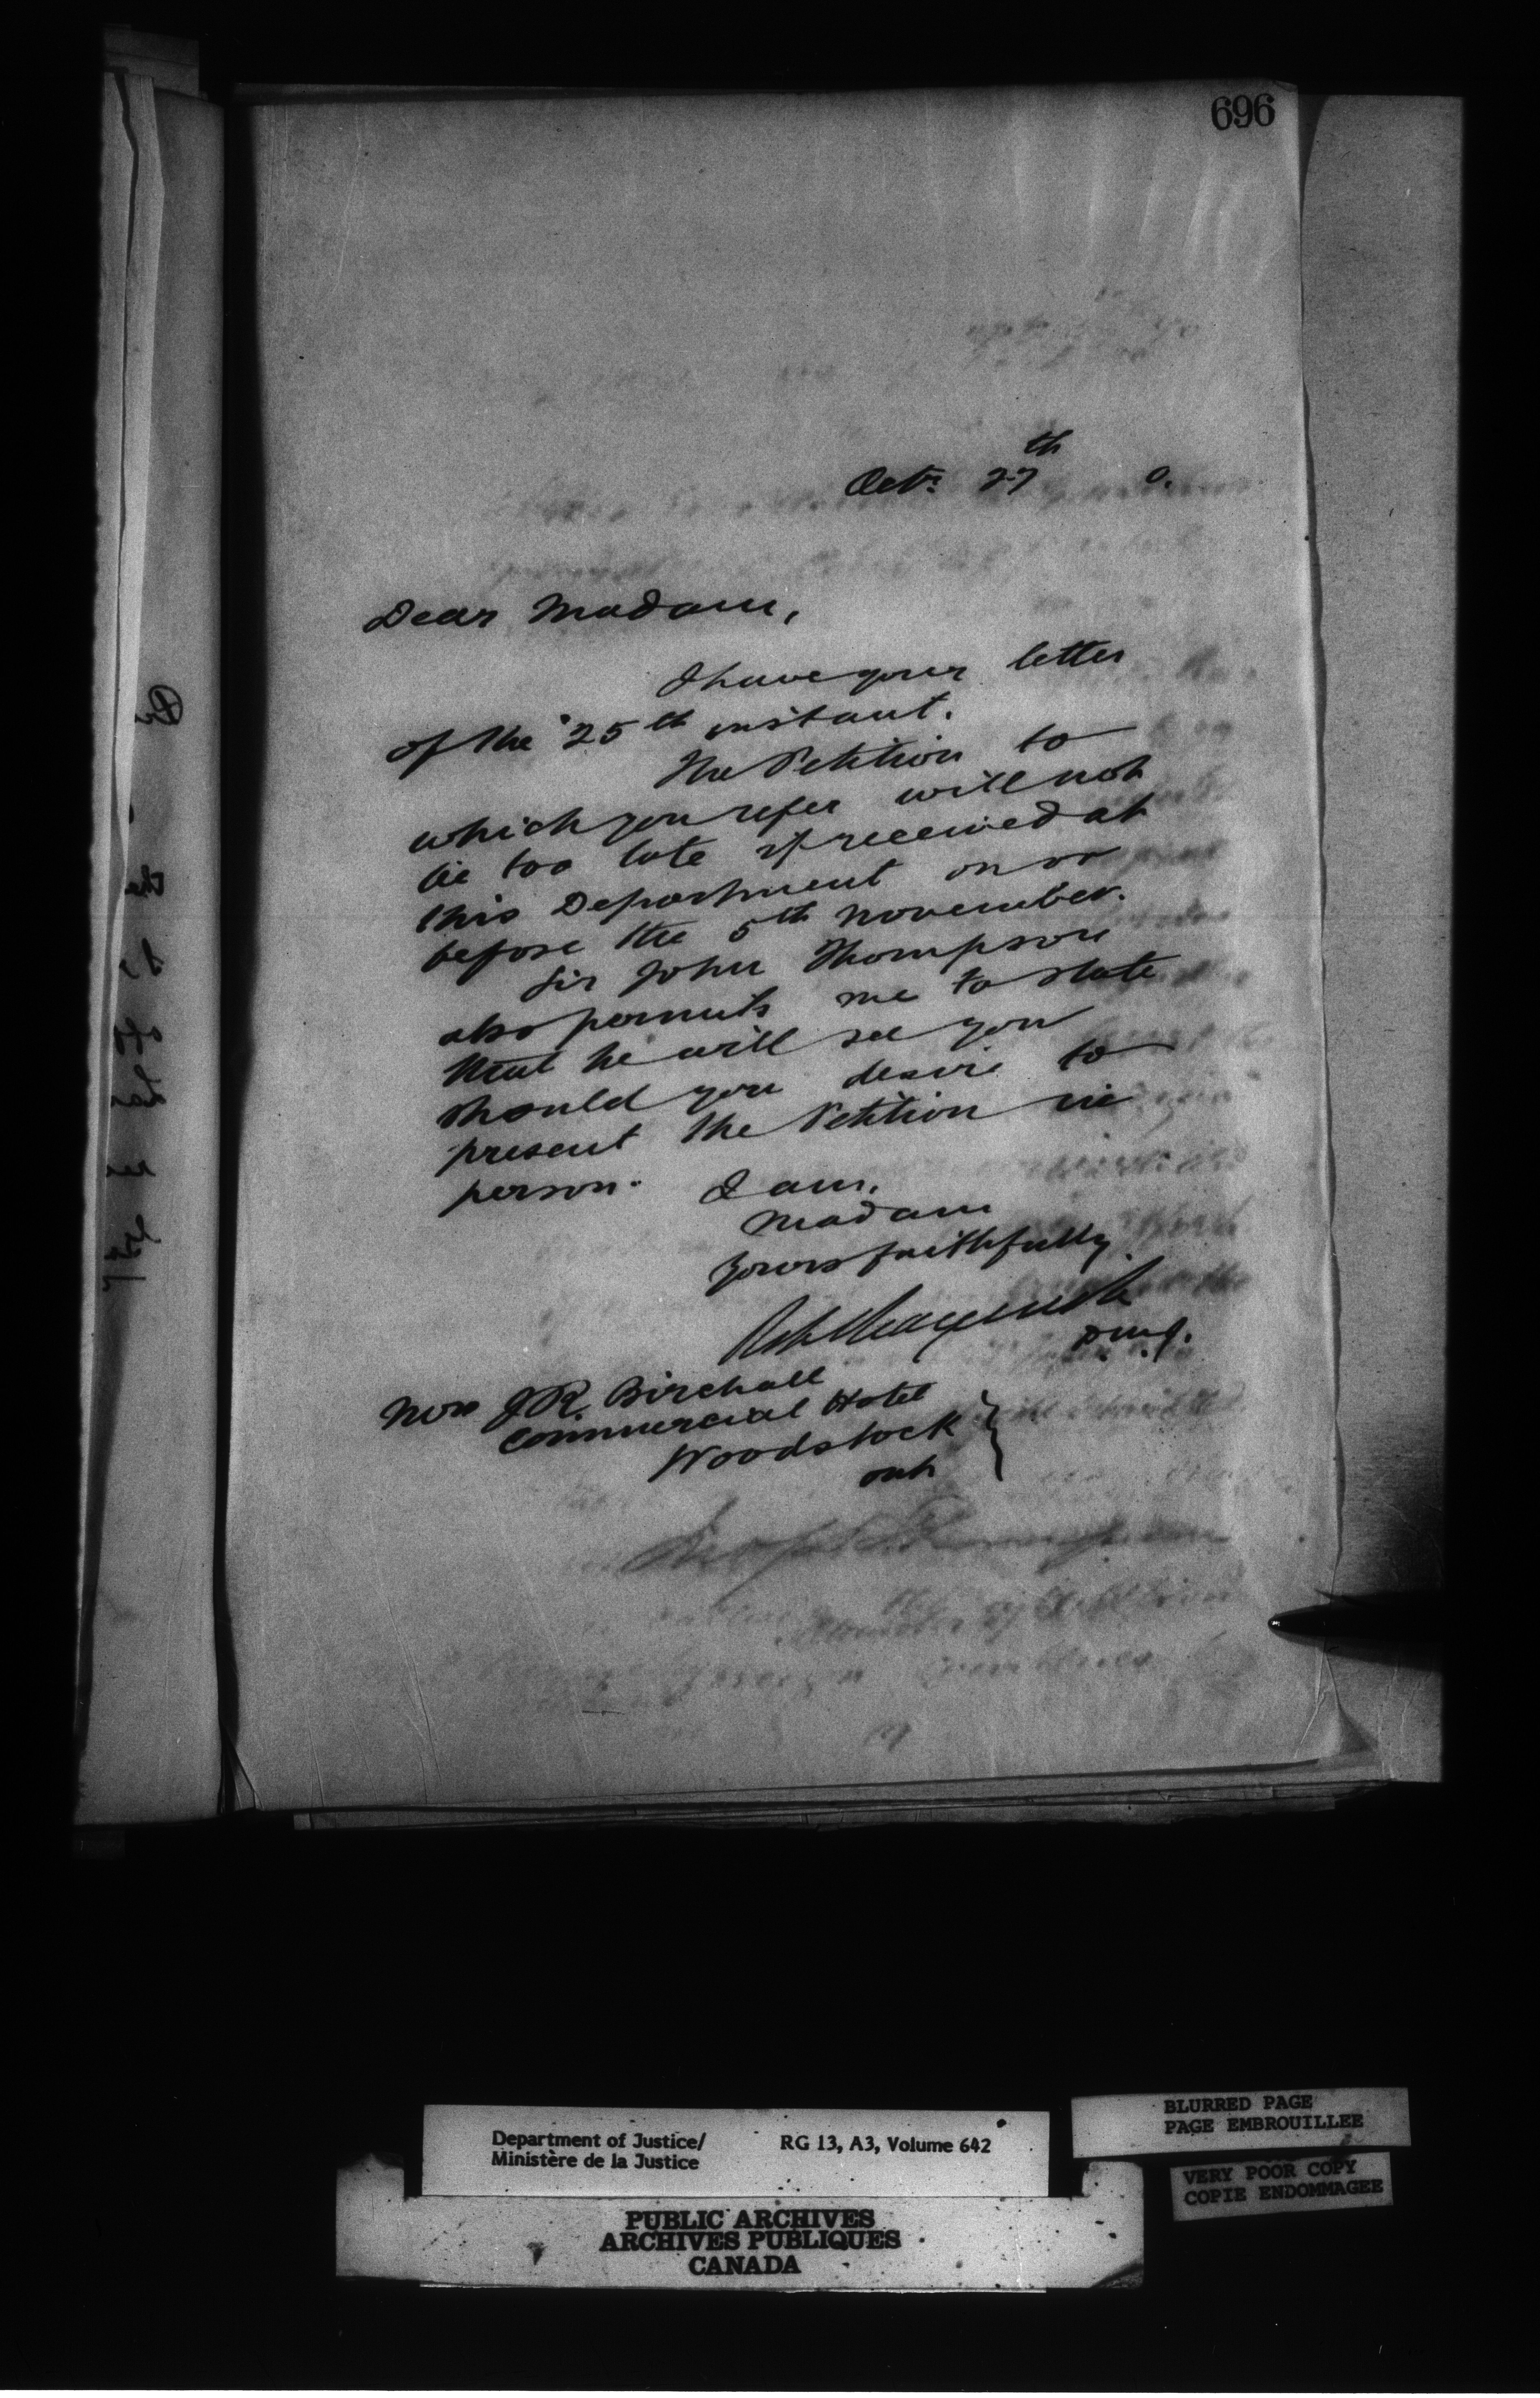 696
Octr. 27th 0.
Dear Madam,
I have your letter
of the 25th instant.
The Petition to
which you refer will not
be too late if received at
this Department on or
before the 5th November.
Sir John Thompson
also permits me to state
that he will see you
should you desire to
present the Petition in
person.
I am,
Madam
Yours faithfully
D.M.J.
Mrs J R Birchall
Commercial Hotel
Woodstock
Ont
Department of Justice/ RG 13, A3, Volume 642
Ministère de la Justice
PUBLIC ARCHIVES
ARCHIVES PUBLIQUES
CANADA
BLURRED PAGE
PAGE EMBROUILLEE
VERY POOR COPY
COPIE ENDOMMAGEE